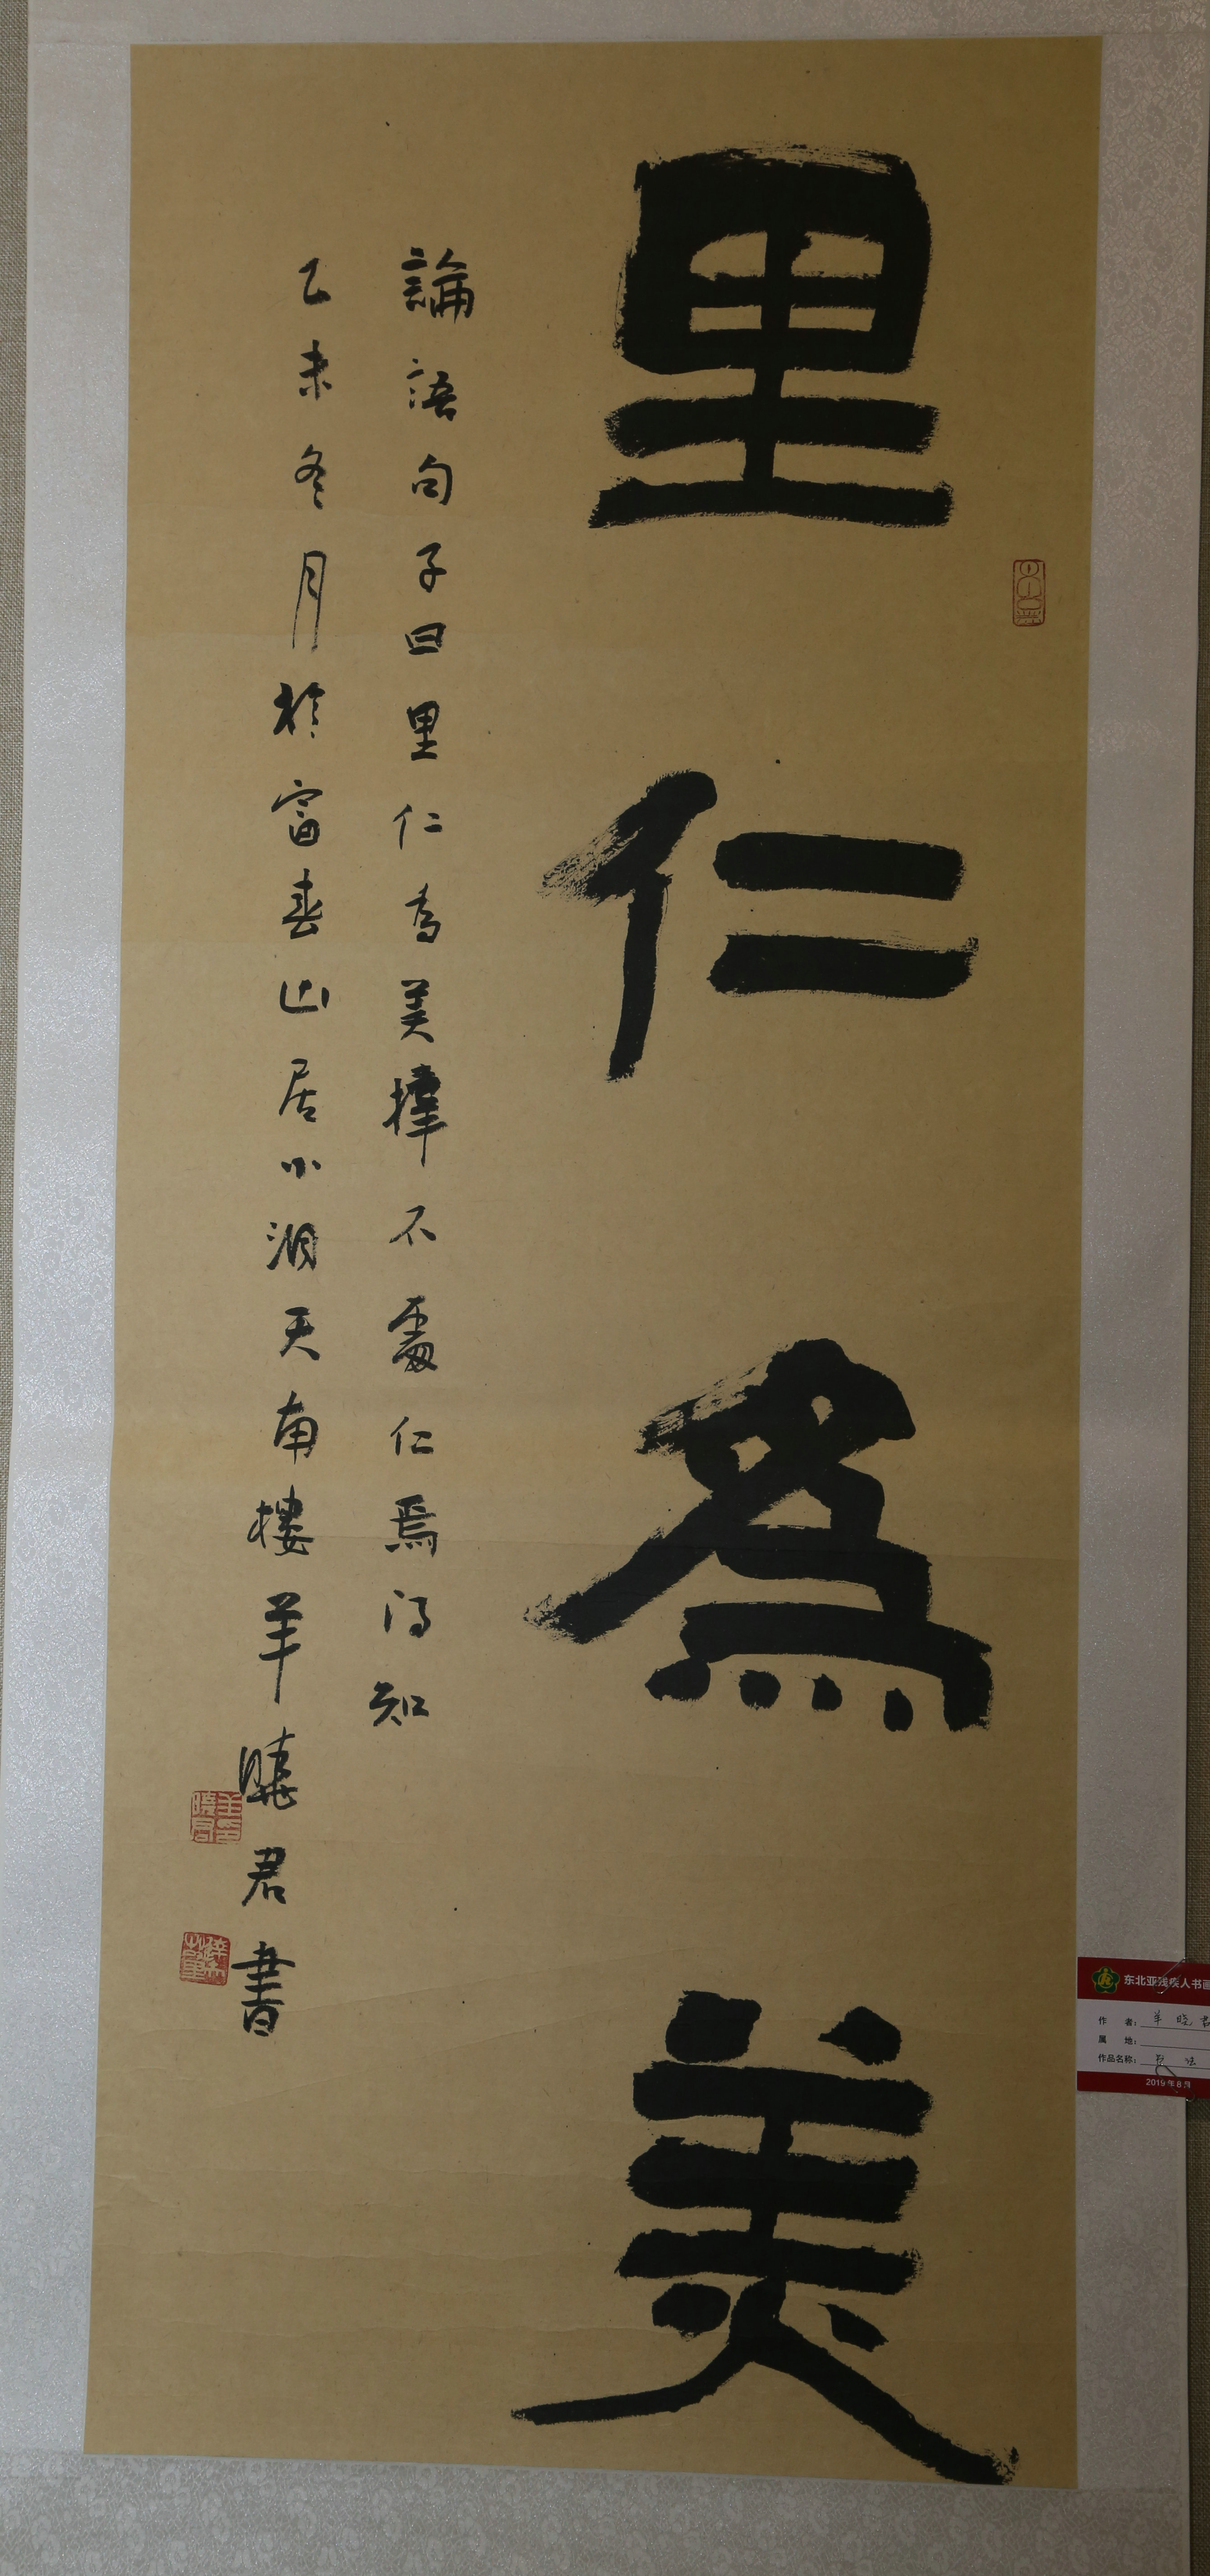 里仁為美
論語句子曰里仁為美擇不處仁焉得知
乙未冬月於富春山居小洞天南樓羊曉君書
东北亚残疾人书画
作 者: 羊晓君
属 地:
作品名称: 书法
2019年8月